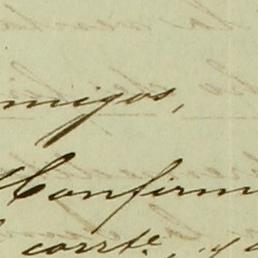 migos,
Confirm
corrte, y